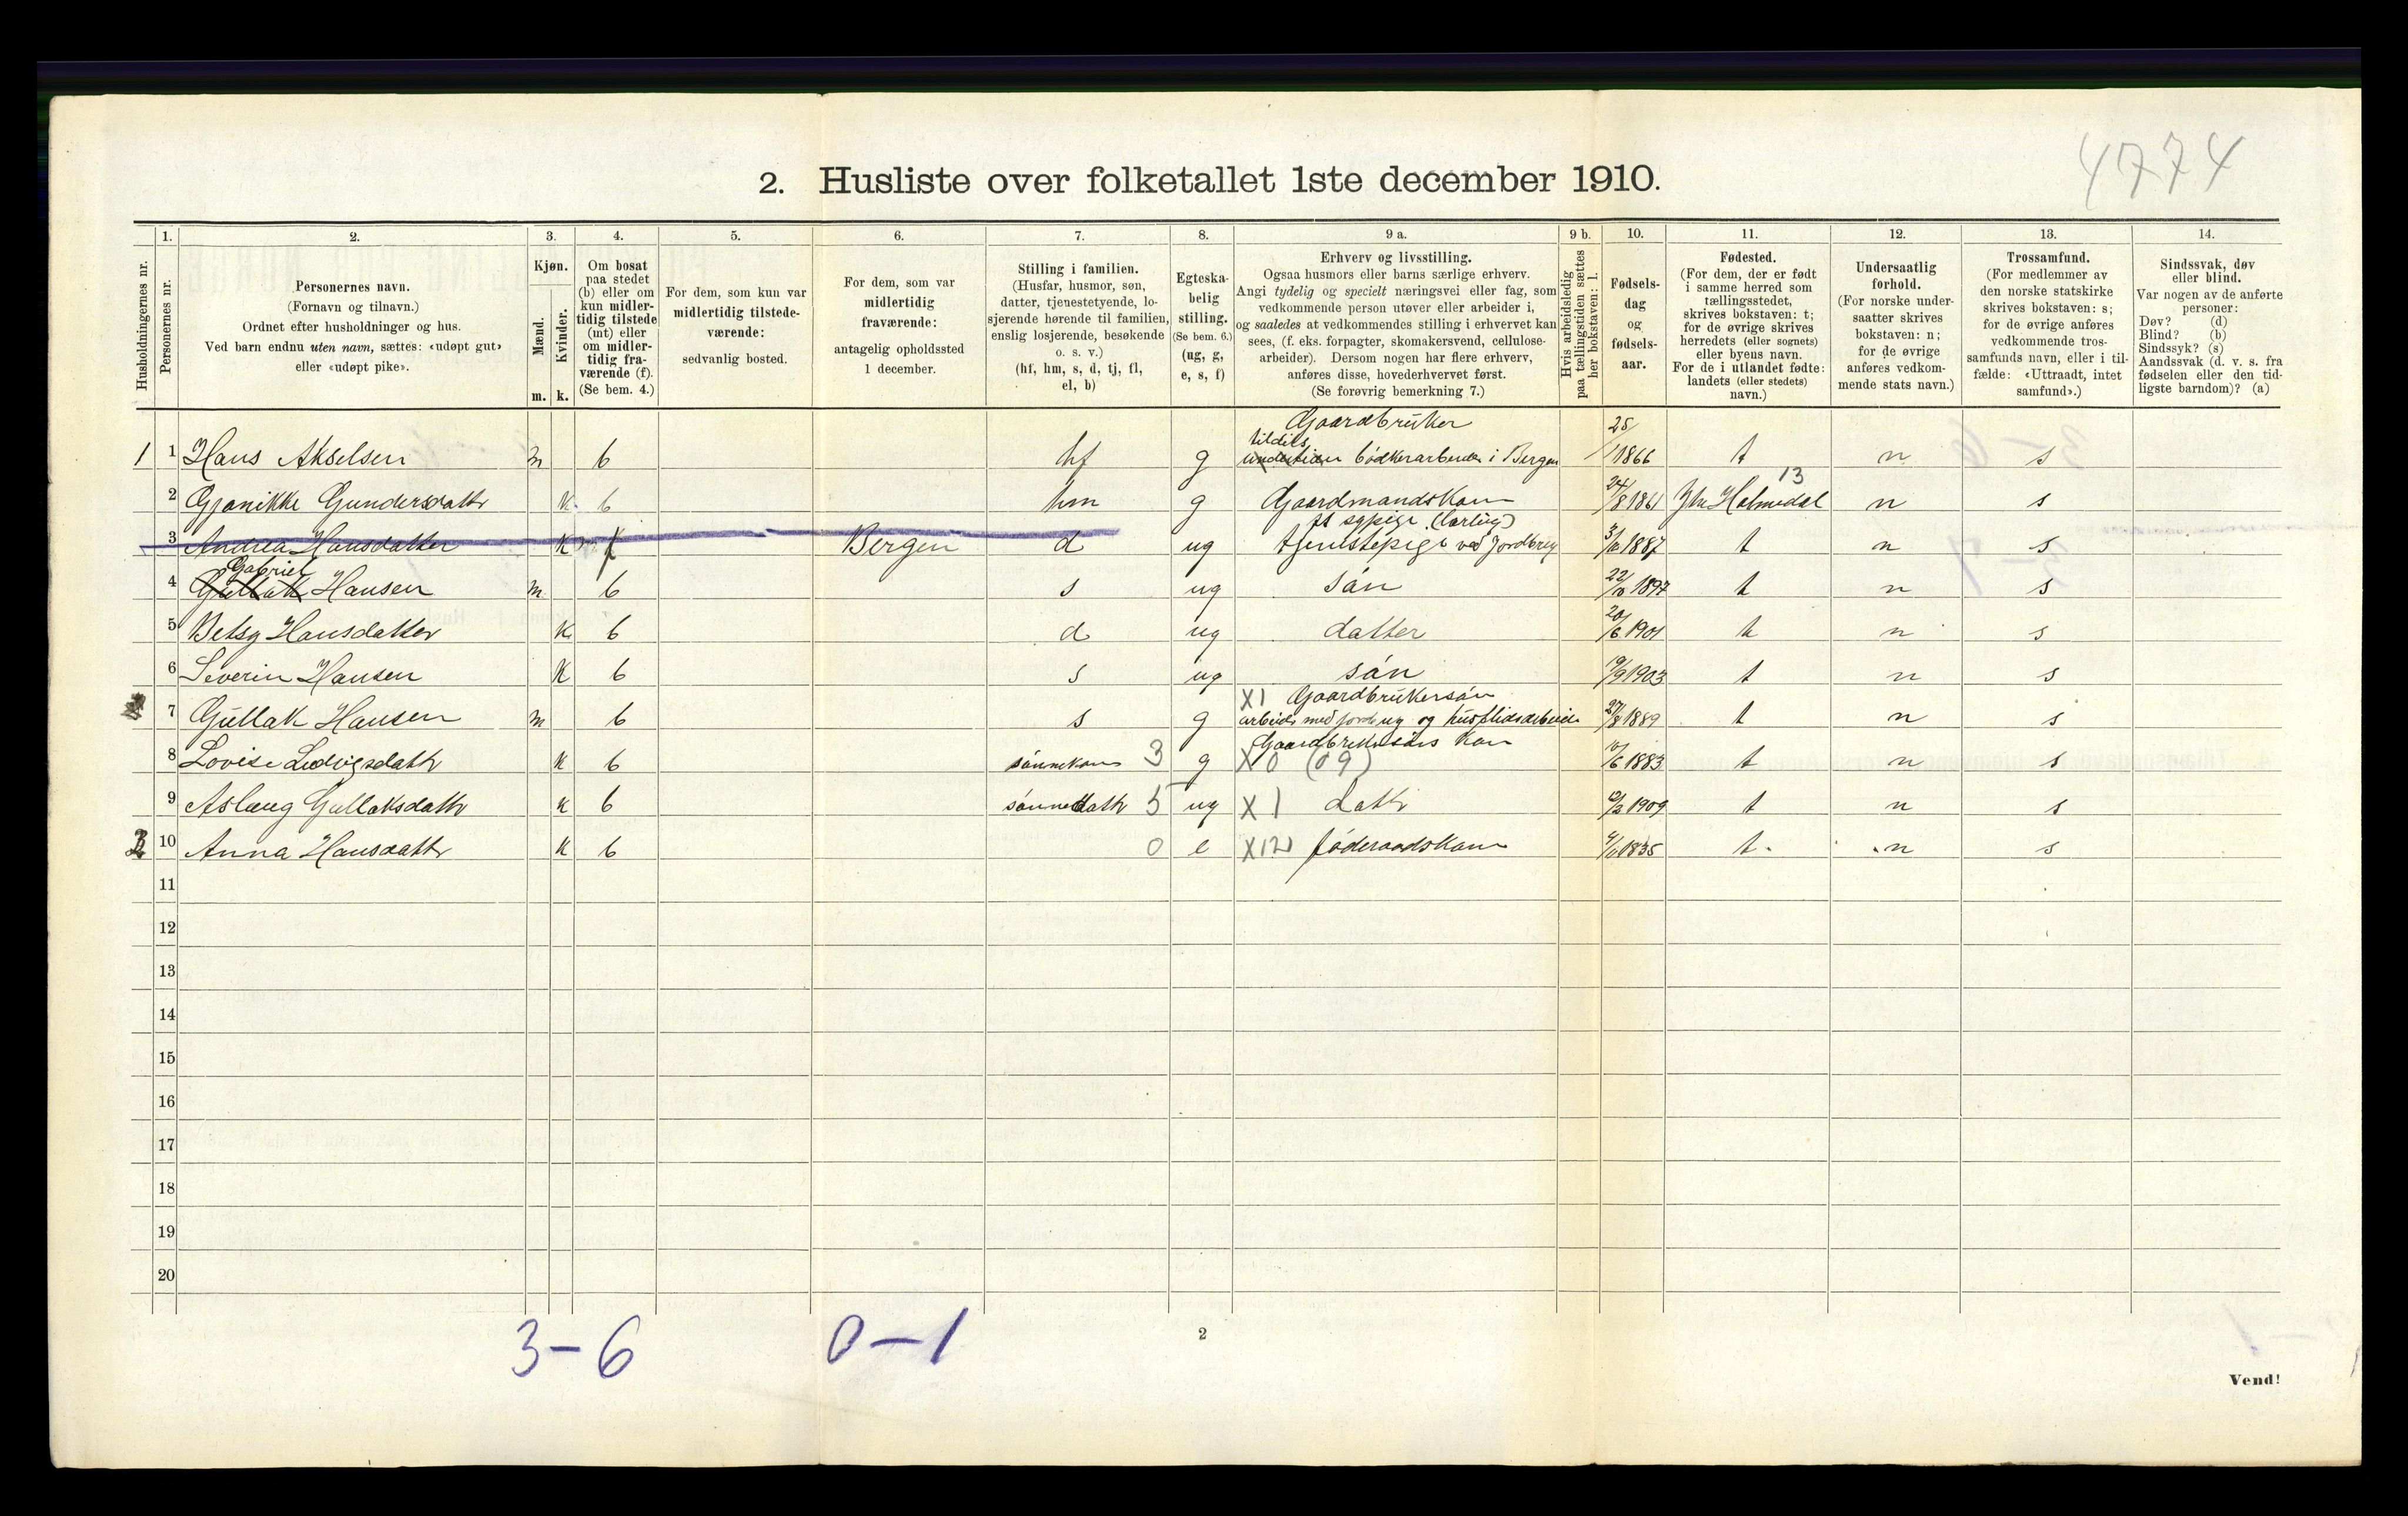 4774
2. Husliste over folketallet 1ste december 1910.
Husholdningernes nr.
1.
Personernes nr.
2.
Personernes navn.
(Fornavn og tilnavn.)
Ordnet efter husholdninger og hus.
Ved barn endnu uten navn, sættes: «udøpt gut»
eller «udøpt pike».
3.
Kjøn.
Mænd.
Kvinder.
m. k.
4.
Om bosat
paa stedet
(b) eller om
kun midler-
tidig tilstede
(mt) eller
om midler-
tidig fra-
værende (f).
(Se bem. 4.)
5.
For dem, som kun var
midlertidig tilstede-
værende:
sedvanlig bosted.
6.
For dem, som var
midlertidig
fraværende:
antagelig opholdssted
1 december.
7.
Stilling i familien.
(Husfar, husmor, søn,
datter, tjenestetyende, lo-
sjerende hørende til familien,
enslig losjerende, besøkende
o. s. v.)
(hf, hm, s, d, tj, fl,
el, b)
8.
Egteska-
belig
stilling.
(Se bem. 6.)
(ug, g,
e, s, f)
9 a.
Erhverv og livsstilling.
Ogsaa husmors eller barns særlige erhverv.
Angi tydelig og specielt næringsvei eller fag, som
vedkommende person utøver eller arbeider i,
og saaledes at vedkommendes stilling i erhvervet kan
sees, (f. eks. forpagter, skomakersvend, cellulose-
arbeider). Dersom nogen har flere erhverv,
anføres disse, hovederhvervet først.
(Se forøvrig bemerkning 7.)
9 b.
Hvis arbeidsledig
paa tællingstiden sættes
her bokstaven: l.
10.
Fødsels-
dag
og
fødsels-
aar.
11.
Fødested.
(For dem, der er født
i samme herred som
tællingsstedet,
skrives bokstaven: t;
for de øvrige skrives
herredets (eller sognets)
eller byens navn.
For de i utlandet fødte:
landets (eller stedets)
navn.)
12.
Undersaatlig
forhold.
(For norske under-
saatter skrives
bokstaven: n;
for de øvrige
anføres vedkom-
mende stats navn.)
13.
Trossamfund.
(For medlemmer av
den norske statskirke
skrives bokstaven: s;
for de øvrige anføres
vedkommende tros-
samfunds navn, eller i til-
fælde: «Uttraadt, intet
samfund».)
14.
Sindssvak, døv
eller blind.
Var nogen av de anførte
personer:
Døv? (d)
Blind? (b)
Sindssyk? (s)
Aandssvak (d. v. s. fra
fødselen eller den tid-
ligste barndom)? (a)
Gaardbruker
tildels
1 1 Hans Akselsen m b hf g bødkerarbeider i Bergen 1866 t n s
13
2 Gjonikke Gundersdatter k b hm g Gaardmandskone 24/8 1861 Ytre Holmedal n s
3 Andrea Hansdatter k f Bergen d ug tjenestepige ved Jordbrug 1887 t n s
Gabriel
4 Gullak Hansen m b s ug søn 22/10 1897 t n s
5 Betsy Hansdatter k b d ug datter 20/6 1901 t n s
6 Severin Hansen k b s ug søn 19/9 1903 t n s
X1 Gaardbrukersøn
7 Gullak Hansen m b s g arbeide med jordbrug og husflidsarbeide 27/8 1889 t n s
Gaardbrukersøns kone
8 Lovise Ludvigsdatter k b sønnekone 3 g X0 (09) 10/6 1883 t n s
9 Aslaug Gullaksdatter k b sønnedatter 5 ug X1 datter 1909 t n s
2 10 Anna Hansdatter k b 0 e X12 føderaadskone 1835 t n s
11
12
13
14
15
16
17
18
19
20
3-6 0-1
2
Vend!